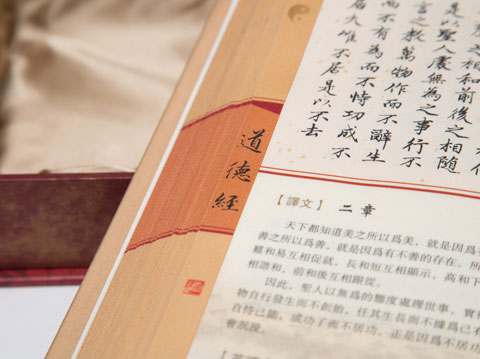 之相和前後之相隨
是以聖人處無為之事行不
言之教萬物作而不辭生
而不有為而不恃功成不
居夫唯不居是以不去
道德經
【譯文】 二章
天下都知道美之所以爲美，就是因爲
善之所以爲善，就是因爲有不善的存在。所
難和易互相促就，長和短互相顯示，高和下
相諧和，前和後互相跟從。
因此，聖人以無爲的態度處理世事，實
物自行發生而不創始，任其生長而不據爲己
自恃己能，成功了而不居功。正是因爲不居功
會泯沒。